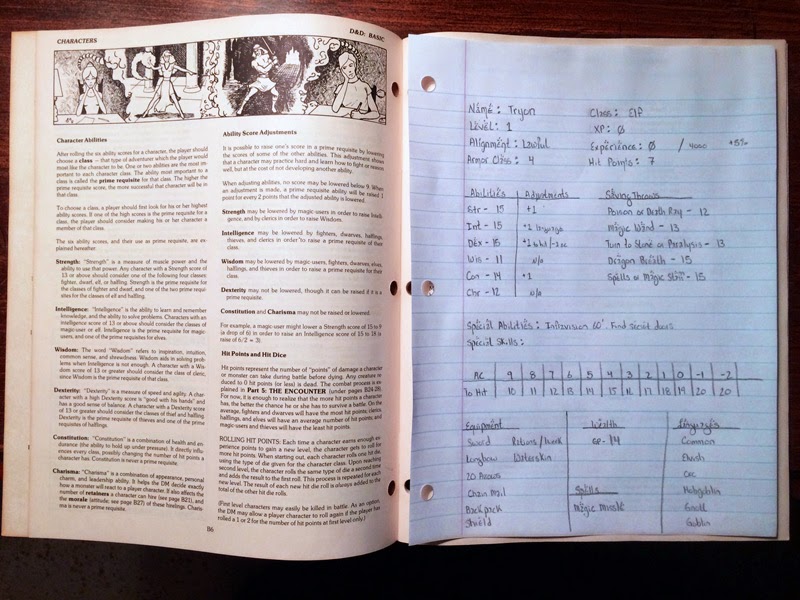 CHARACTERS
D&D: BASIC
Character Abilities
After rolling the six ability scores for a character, the player should
choose a class — that type of adventurer which the player would
most like the character to be. One or two abilities are the most im-
portant to each character class. The ability most important to a
class is called the prime requisite for that class. The higher the
prime requisite score, the more successful that character will be in
that class.
To choose a class, a player should first look for his or her highest
ability scores. If one of the high scores is the prime requisite for a
class, the player should consider making his or her character a
member of that class.
The six ability scores, and their use as prime requisite, are ex-
plained hereafter.
Strength: "Strength" is a measure of muscle power and the
ability to use that power. Any character with a Strength score of
13 or above should consider one of the following four classes:
fighter, dwarf, elf, or halfling. Strength is the prime requisite for
the classes of fighter and dwarf, and one of the two prime requi-
sites for the classes of elf and halfling.
Intelligence: "Intelligence" is the ability to learn and remember
knowledge, and the ability to solve problems. Characters with an
Intelligence score of 13 or above should consider the classes of
magic-user or elf. Intelligence is the prime requisite for magic-
users, and one of the prime requisites for elves.
Wisdom: The word "Wisdom" refers to inspiration, intuition,
common sense, and shrewdness. Wisdom aids in solving prob-
lems when Intelligence is not enough. A character with a Wis-
dom score of 13 or greater should consider the class of cleric,
since Wisdom is the prime requisite of that class.
Dexterity: "Dexterity" is a measure of speed and agility. A char-
acter with a high Dexterity score is "good with his hands" and
has a good sense of balance. A character with a Dexterity score
of 13 or greater should consider the classes of thief and halfling.
Dexterity is the prime requisite of thieves and one of the prime
requisites of halflings.
Constitution: "Constitution" is a combination of health and en-
durance (the ability to hold up under pressure). It directly influ-
ences every class, possibly changing the number of hit points a
character has. Constitution is never a prime requisite.
Charisma: "Charisma" is a combination of appearance, personal
charm, and leadership ability. It helps the DM decide exactly
how a monster will react to a player character. It also affects the
number of retainers a character can hire (see page B21), and
the morale (attitude; see page B27) of these hirelings. Charis-
ma is never a prime requisite.
Ability Score Adjustments
It is possible to raise one's score in a prime requisite by lowering
the scores of some of the other abilities. This adjustment shows
that a character may practice hard and learn how to fight or reason
well, but at the cost of not developing another ability.
When adjusting abilities, no score may be lowered below 9. When
an adjustment is made, a prime requisite ability will be raised 1
point for every 2 points that the adjusted ability is lowered.
Strength may be lowered by magic-users in order to raise Intelli-
gence, and by clerics in order to raise Wisdom.
Intelligence may be lowered by fighters, dwarves, halflings,
thieves, and clerics in order to raise a prime requisite of their
class.
Wisdom may be lowered by magic-users, fighters, dwarves, elves,
halflings, and thieves in order to raise a prime requisite for their
class.
Dexterity may not be lowered, though it can be raised if it is a
prime requisite.
Constitution and Charisma may not be raised or lowered.
For example, a magic-user might lower a Strength score of 15 to 9
(a drop of 6) in order to raise an Intelligence score of 15 to 18 (a
raise of 6/2 = 3).
Hit Points and Hit Dice
Hit points represent the number of "points" of damage a character
or monster can take during battle before dying. Any creature re-
duced to 0 hit points (or less) is dead. The combat process is ex-
plained in Part 5: THE ENCOUNTER (under pages B24-28).
For now, it is enough to realize that the more hit points a character
has, the better the chance he or she has to survive a battle. On the
average, fighters and dwarves will have the most hit points; clerics,
halflings, and elves will have an average number of hit points; and
magic-users and thieves will have the least hit points.
ROLLING HIT POINTS: Each time a character earns enough ex-
perience points to gain a new level, the character gets to roll for
more hit points. When starting out, each character rolls one hit die,
using the type of die given for the character class. Upon reaching
second level, the character rolls the same type of die a second time
and adds the result to the first roll. This process is repeated for each
new level. The result of each new hit die roll is always added to the
total of the other hit die rolls.
(First level characters may easily be killed in battle. As an option,
the DM may allow a player character to roll again if the player has
rolled a 1 or 2 for the number of hit points at first level only.)
B6
Name: Tryon Class: Elf
Level: 1 XP: Ø
Alignment: Lawful Experience: Ø / 4000 +5%
Armor Class: 4 Hit Points: 7
Abilities Adjustments Saving Throws
Str - 15 +1 Poison or Death Ray - 12
Int - 15 +1 language Magic Wand - 13
Dex - 15 +1 to hit/-1 ac Turn to Stone or Paralysis - 13
Wis - 11 N/A Dragon Breath - 15
Con - 14 +1 Spells or Magic Staff - 15
Chr - 12 N/A
Special Abilities: Infravision 60' Find secret doors
Special Skills:
AC 9 8 7 6 5 4 3 2 1 0 -1 -2
To Hit 10 11 12 13 14 15 16 17 18 19 20 20
Equipment Wealth Languages
Sword Rations/1 week GP - 14 Common
Longbow Waterskin Elvish
20 Arrows Orc
Chain Mail Spells Hobgoblin
Backpack Magic Missile Gnoll
Shield Goblin